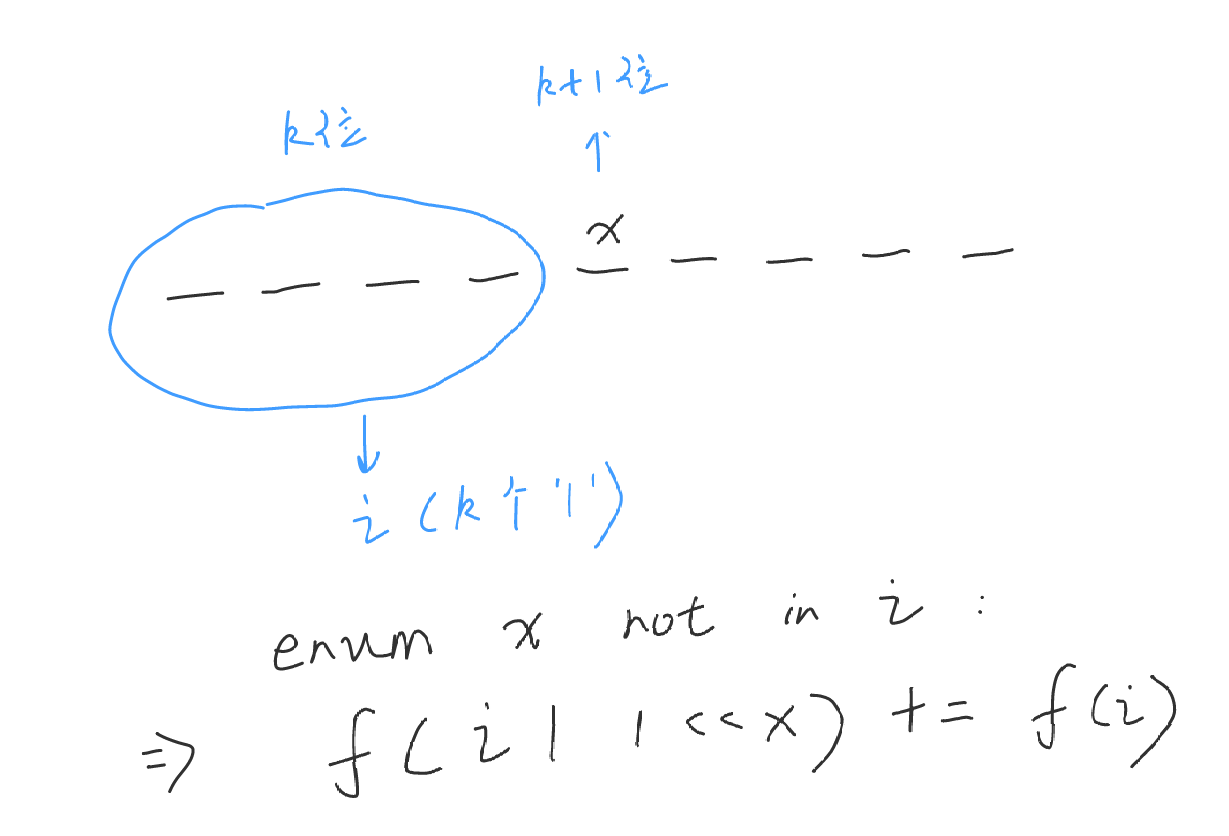 k+1位
k位
x
i (k个'1')
enum x not in i :
⇒ f(i | 1<<x) += f(i)